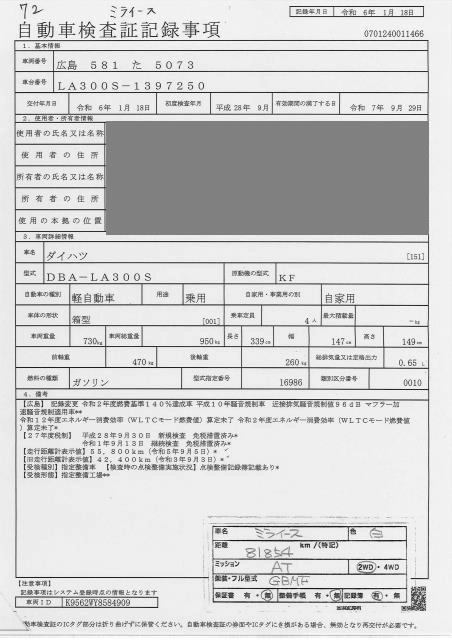 72 ミライース
記録年月日 令和 6年 1月 18日
自動車検査証記録事項
0701240011466
1．基本情報
車両番号 広島 581 た 5073
車台番号 LA300S-1397250
交付年月日 令和 6年 1月 18日 初度検査年月 平成 28年 9月 有効期間の満了する日 令和 7年 9月 29日
2．使用者・所有者情報
使用者の氏名又は名称
使用者の住所
所有者の氏名又は名称
所有者の住所
使用の本拠の位置
3．車両詳細情報
車名 ダイハツ [151]
型式 DBA-LA300S 原動機の型式 KF
自動車の種別 軽自動車 用途 乗用 自家用・事業用の別 自家用
車体の形状 箱型 [001] 乗車定員 4人 最大積載量 -kg
車両重量 730kg 車両総重量 950kg 長さ 339cm 幅 147cm 高さ 149cm
前軸重 470kg 後軸重 260kg 総排気量又は定格出力 0.65 L
燃料の種類 ガソリン 型式指定番号 16986 類別区分番号 0010
4．備考
【広島】 記録変更 令和2年度燃費基準140％達成車 平成10年騒音規制車 近接排気騒音規制値96dB マフラー加
速騒音規制適用車**
令和12年度エネルギー消費効率（WLTCモード燃費値）算定未了 令和2年度エネルギー消費効率（WLTCモード燃費値
）算定未了*
【27年度税制】 平成28年9月30日 新規検査 免税措置済み*
令和1年9月13日 継続検査 免税措置済み*
【走行距離計表示値】55，800km（令和5年9月5日）*
【旧走行距離計表示値】42，400km（令和3年9月3日）*
【受検種別】指定整備車 【検査時の点検整備実施状況】点検整備記録簿記載あり*
【受検形態】指定整備工場**
車名 ミライース 色 白
距離 81854 km／(特記)
ミッション AT 2WD・4WD
個装・フル型式 GBMF
保証書 有・無 整備手帳 有・無 記録簿 有・無
【注意事項】
記録事項はシステム登録時点の情報となります
車両ID K9562WY8584909
動車検査証のICタグ部分は折り曲げずに保管ください。自動車検査証の券面やICタグにき損がある場合、無効となり再交付が必要です。